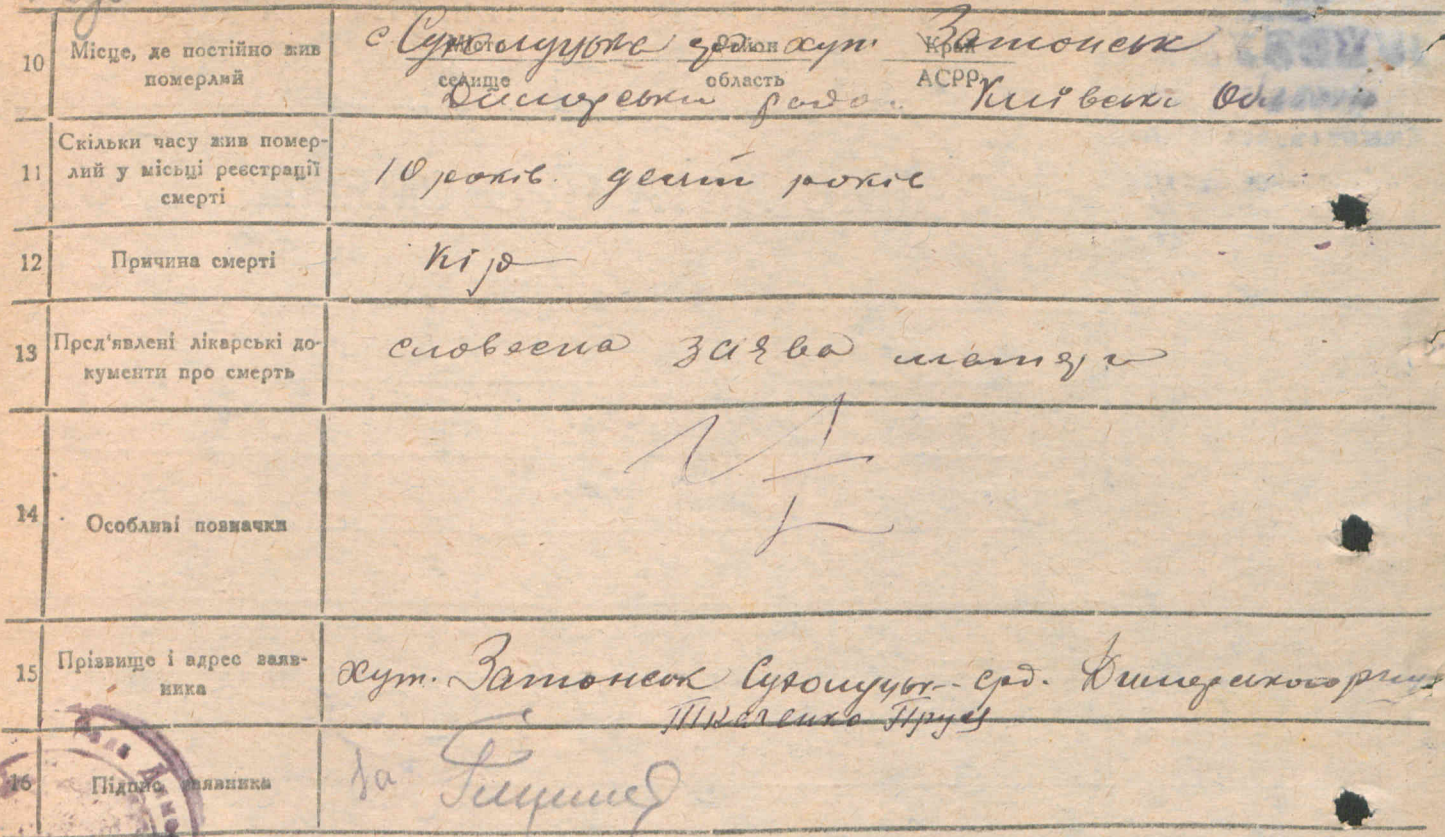 10 Місце, де постійно жив померлий
Місто Район Край
селище область АСРР
с хут. Затонськ
Димерський Київська
11 Скільки часу жив помер-
лий у місьці реєстрації
смерті
10 років. десят років
12 Причина смерті
Кір
13 Пред'явлені лікарські до-
кументи про смерть
словесна заява матері
14 Особливі позначки
15 Прізвище і адрес заяв-
ника
хут. Затонськ срд. Димерського
Ткаченко
16 Підпис заявника
За